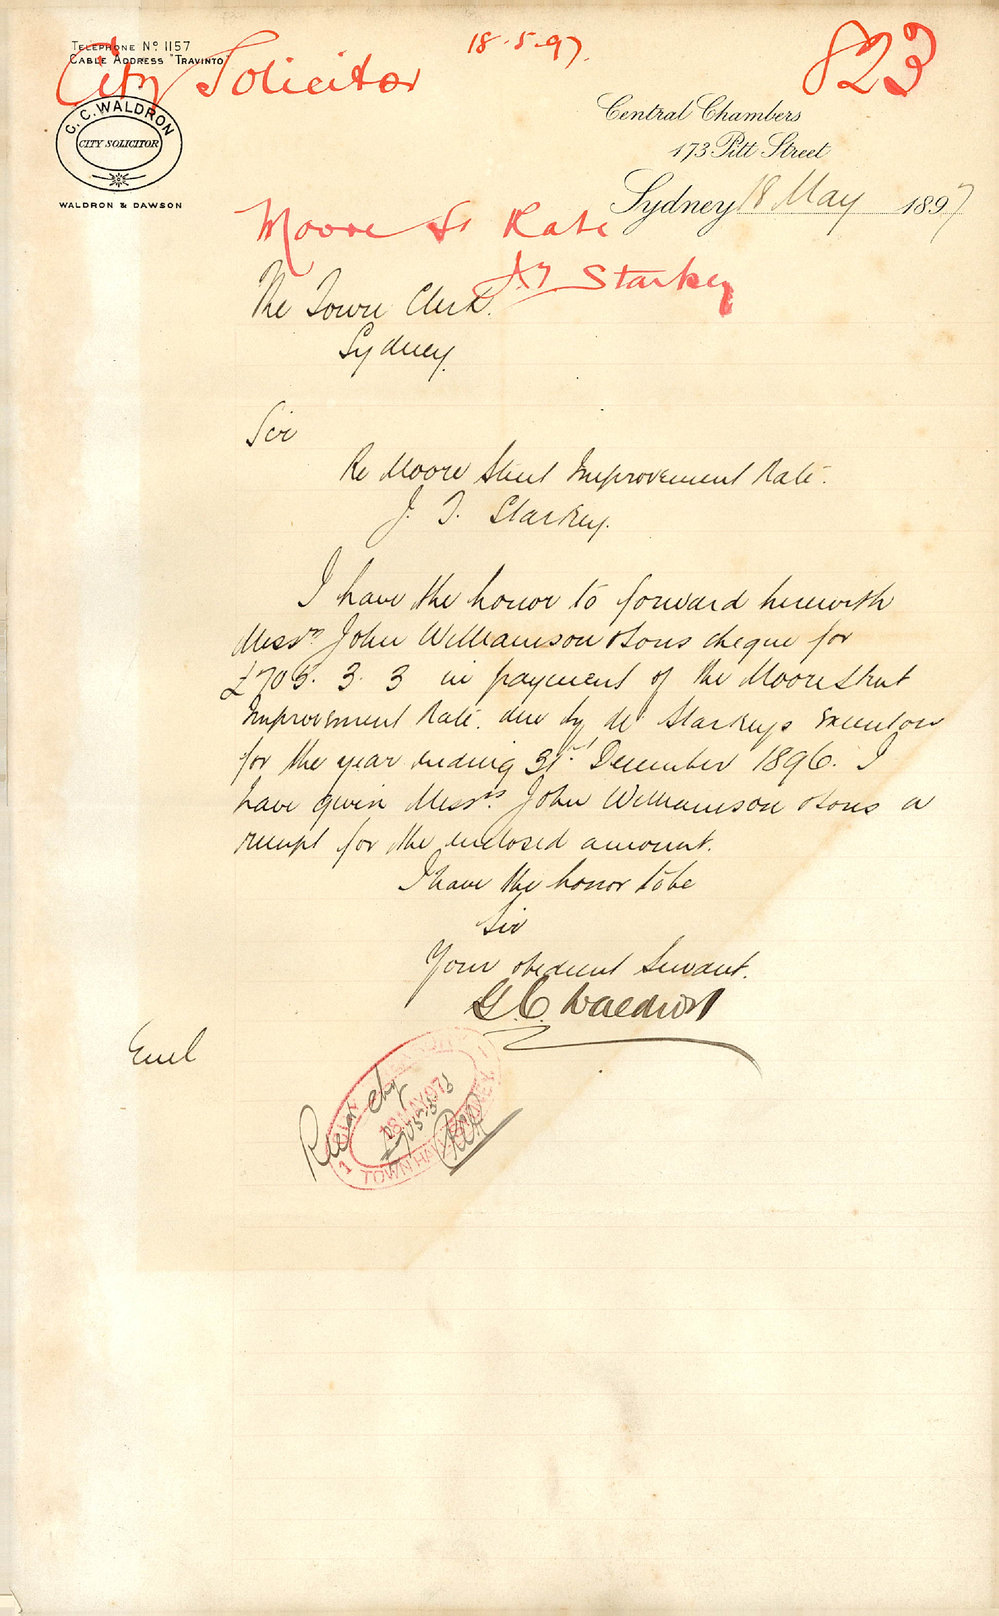 TELEPHONE No. 1157
CABLE ADDRESS "TRAVINTO"
City Solicitor
18.5.97.
823
C. C. WALDRON
CITY SOLICITOR
WALDRON & DAWSON
Central Chambers
173 Pitt Street
Sydney 18 May 1897
Moore St Rate
J T Starkey
The Town Clerk.
Sydney.
Sir
Re Moore Street Improvement Rate.
J. T. Starkey.
I have the honor to forward herewith
Messrs John Williamson & Sons cheque for
£705. 3. 3 in payment of the Moore Street
Improvement Rate. due by Mr Starkeys Executors
for the year ending 31st. December 1896. I
have given Messrs. John Williamson & Sons a
receipt for the enclosed amount.
I have the honor to be
Sir
Your obedient Servant.
G. C. Waldron
Encl
Received chq
£705-3-3
18 MAY 97
TOWN HALL SYDNEY